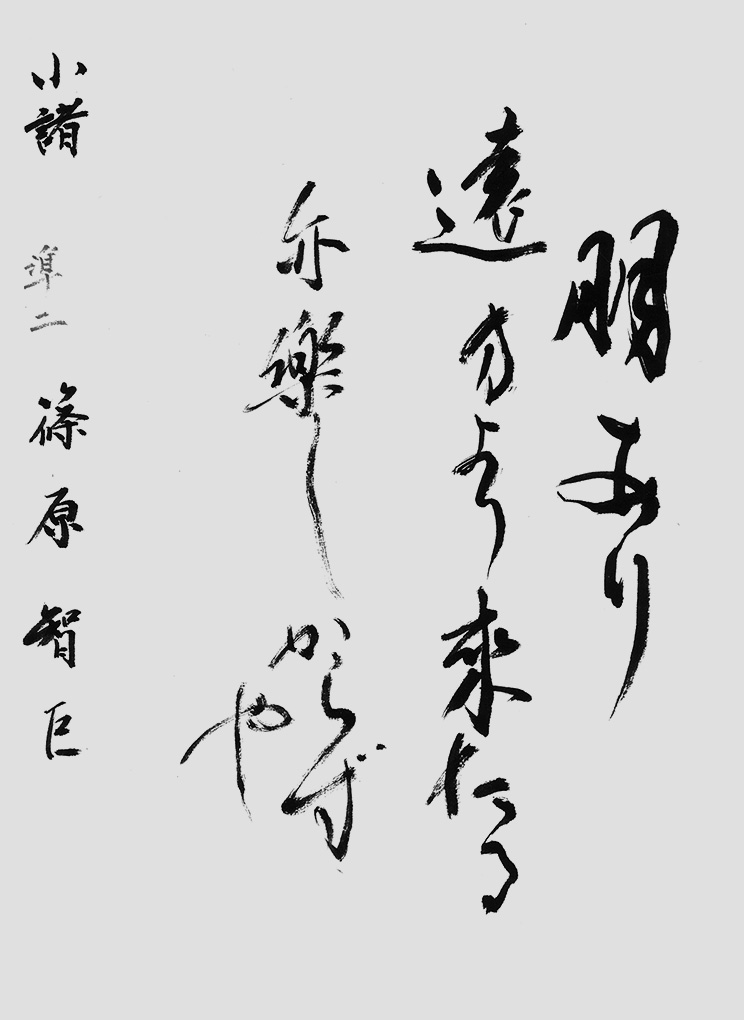 朋あり
遠方より來たる
亦樂しからず
や
小諸 準二 篠原智巨